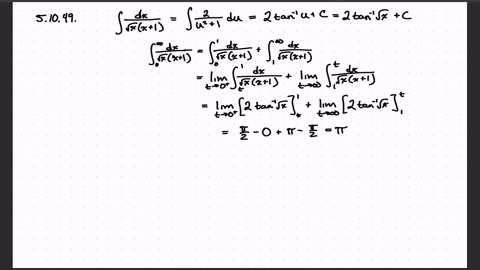 5.10.49. ∫ dx/(√x(x+1)) = ∫ 2/(u²+1) du = 2 tan⁻¹ u + C = 2 tan⁻¹ √x + C
∫₀^∞ dx/(√x(x+1)) = ∫₀¹ dx/(√x(x+1)) + ∫₁^∞ dx/(√x(x+1))
= lim t→0⁺ ∫ₜ¹ dx/(√x(x+1)) + lim t→∞ ∫₁ᵗ dx/(√x(x+1))
= lim t→0⁺ [2 tan⁻¹ √x]ₜ¹ + lim t→∞ [2 tan⁻¹ √x]₁ᵗ
= π/2 − 0 + π − π/2 = π